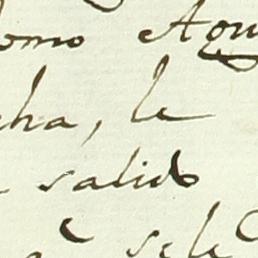 omo Agu
cha, le
salió
sele